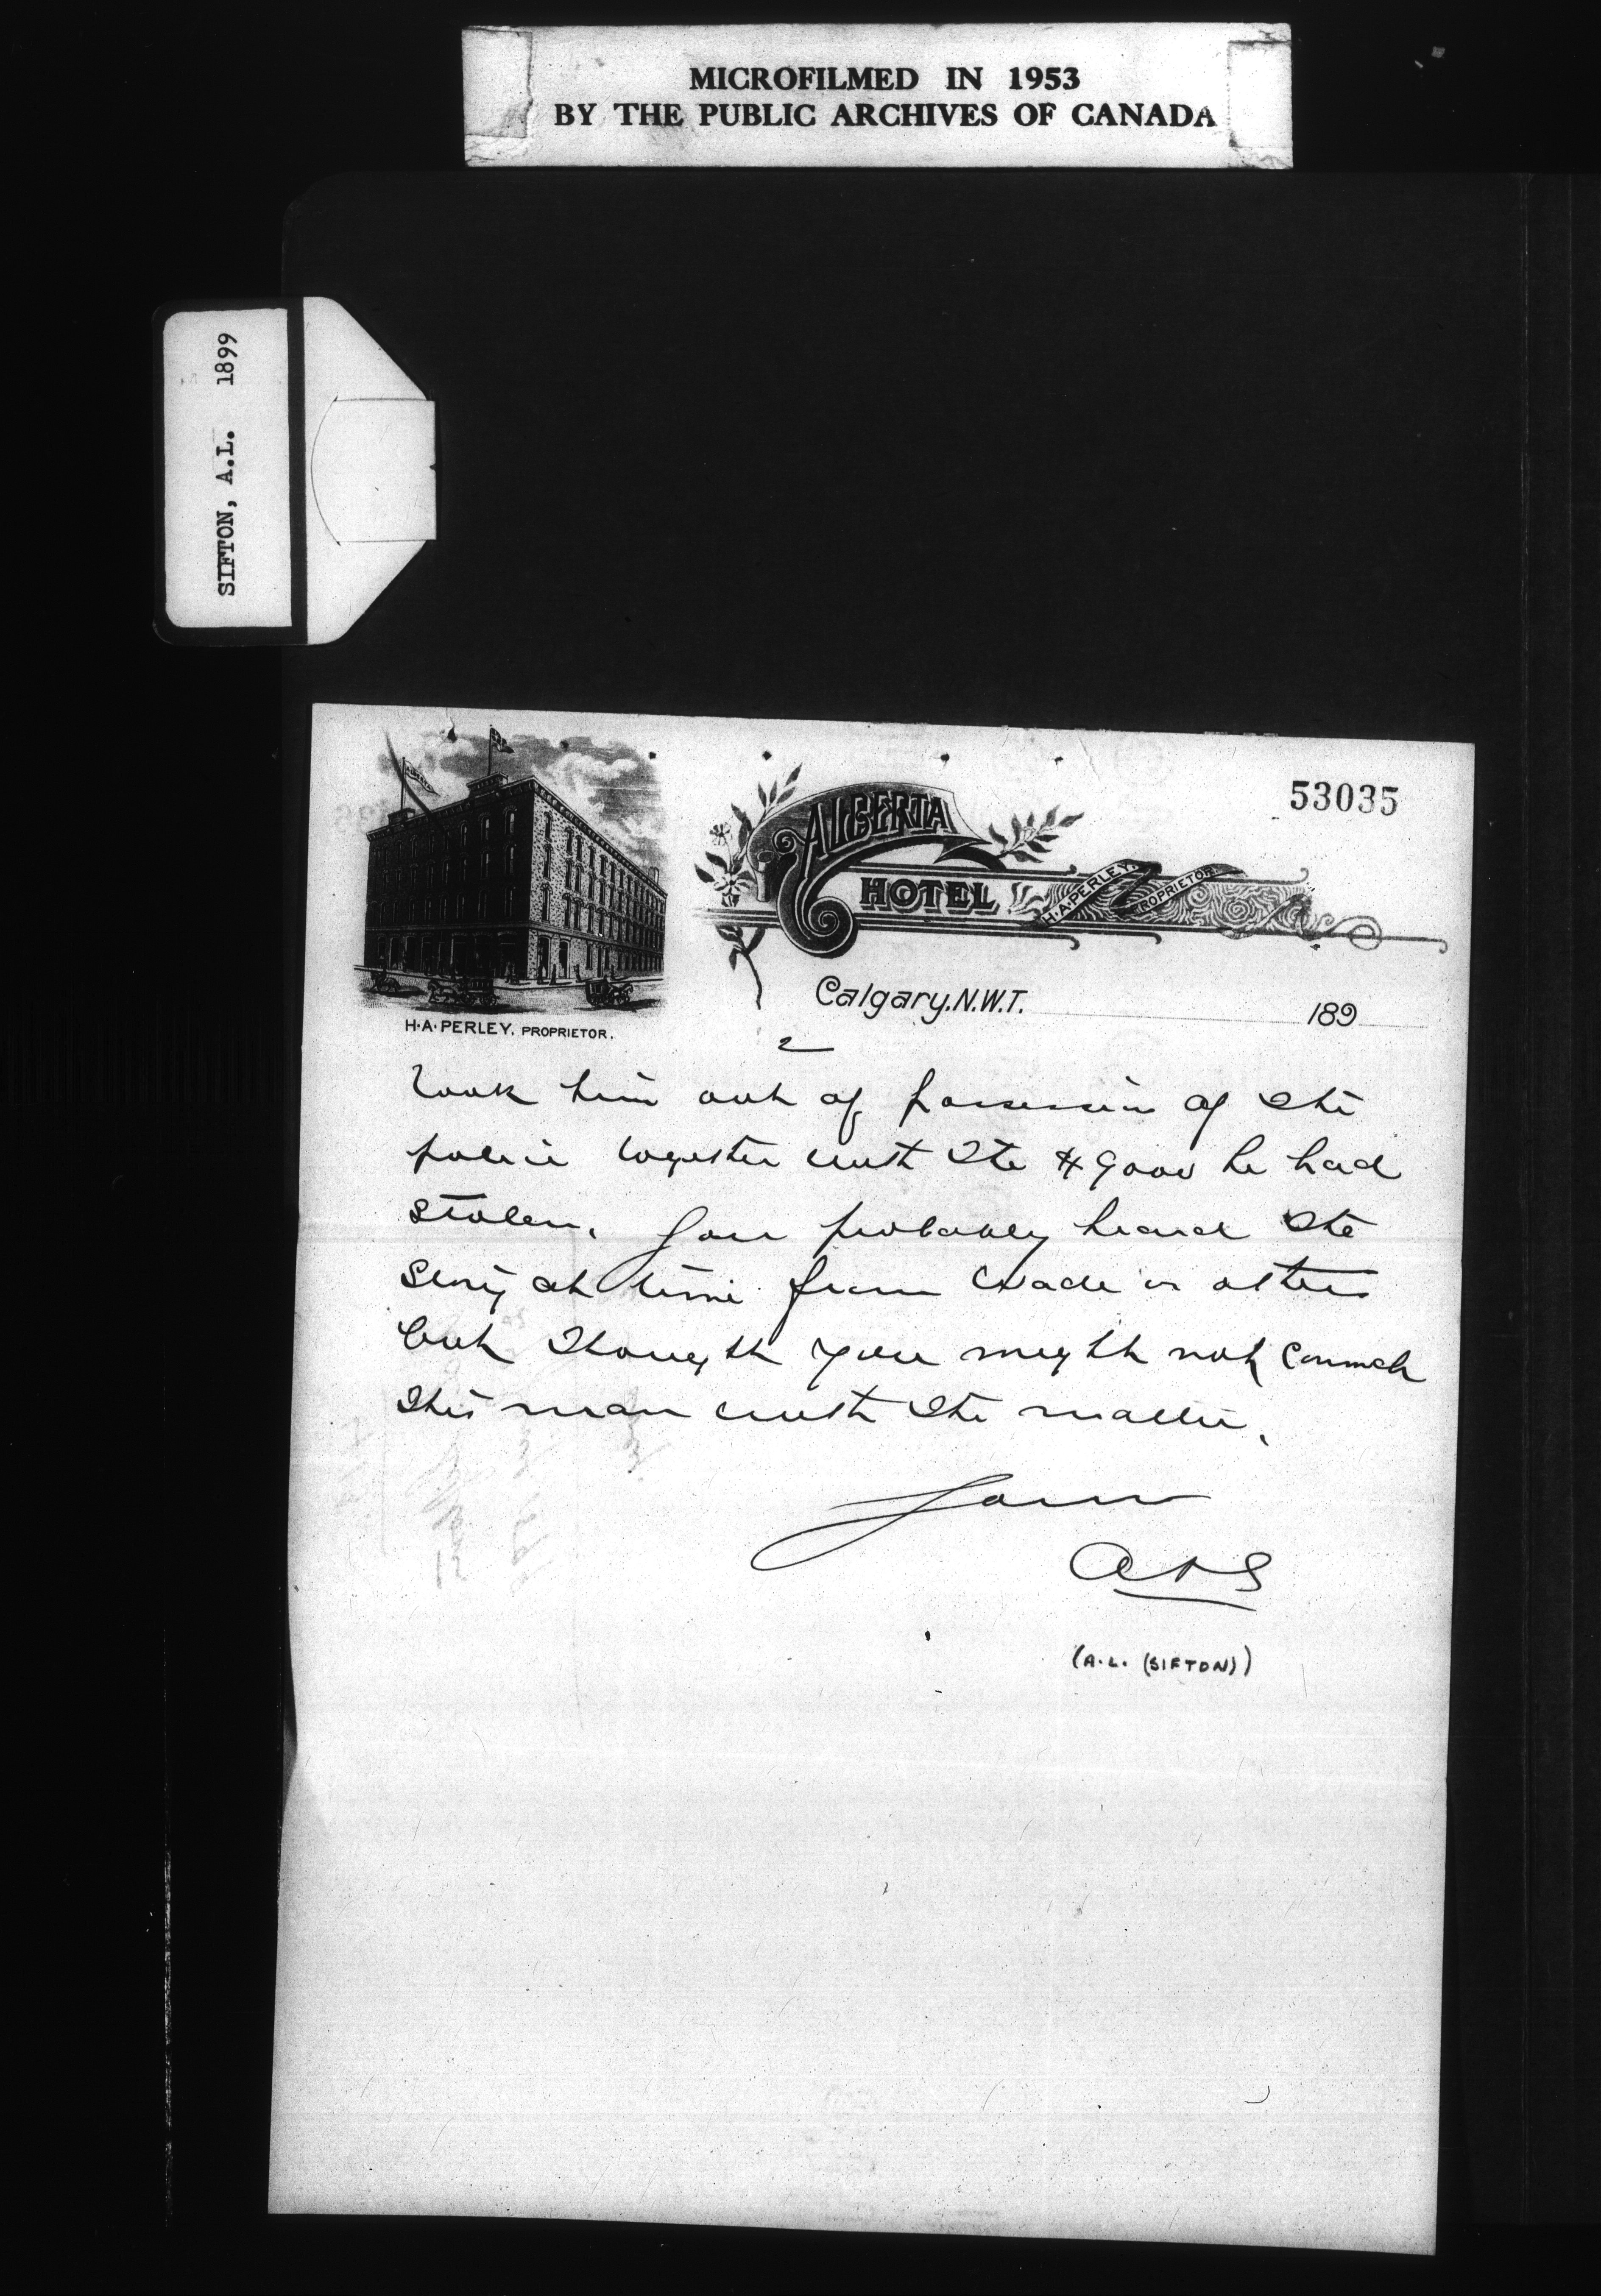 MICROFILMED IN 1953
BY THE PUBLIC ARCHIVES OF CANADA
SIFTON, A.L. 1899
53035
ALBERTA
HOTEL
H.A. PERLEY. PROPRIETOR.
H.A. PERLEY, PROPRIETOR.
Calgary, N.W.T. 189
2
took him out of possession of the
police together with the $9000 he had
stolen. You probably heard the
story at time from Wade or others
but thought you might not connect
this man with the matter.
Yours
ALS
(A.L. (SIFTON))